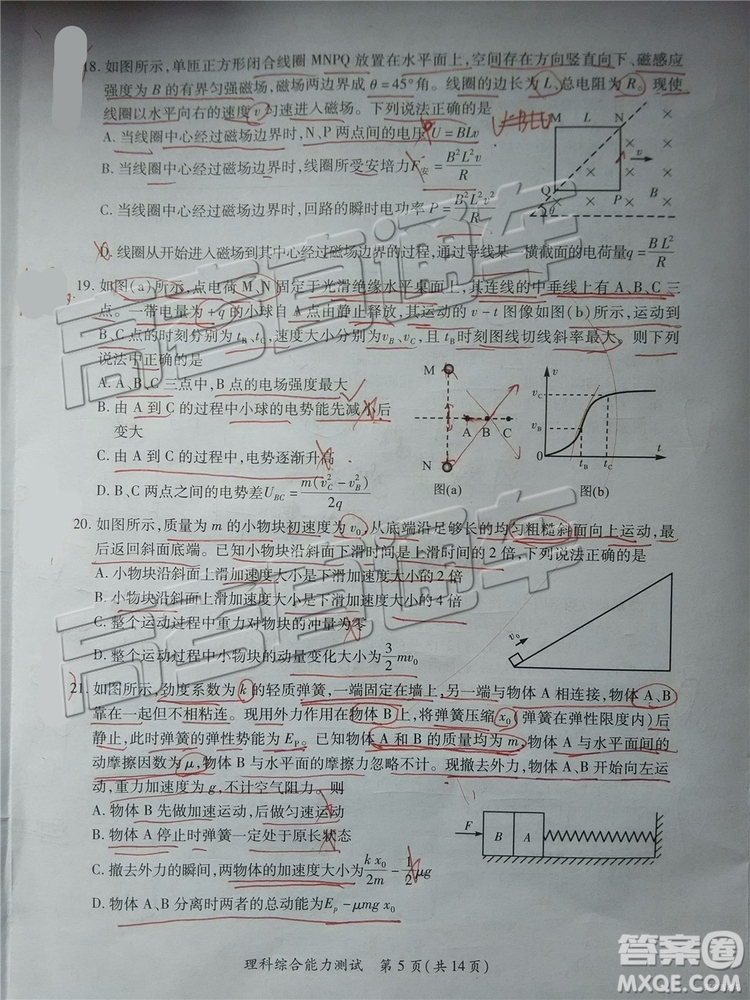 18. 如图所示,单匝正方形闭合线圈 MNPQ 放置在水平面上,空间存在方向竖直向下、磁感应
强度为 B 的有界匀强磁场,磁场两边界成 θ=45°角。线圈的边长为 L、总电阻为 R。现使
线圈以水平向右的速度 v 匀速进入磁场。下列说法正确的是
A. 当线圈中心经过磁场边界时,N、P 两点间的电压 U=BLv
B. 当线圈中心经过磁场边界时,线圈所受安培力 F安=B²L²v/R
C. 当线圈中心经过磁场边界时,回路的瞬时电功率 P=B²L²v²/R
D. 线圈从开始进入磁场到其中心经过磁场边界的过程,通过导线某一横截面的电荷量 q=BL²/R
M L N
v
Q P B
θ
19. 如图(a)所示,点电荷 M、N 固定于光滑绝缘水平桌面上,其连线的中垂线上有 A、B、C 三
点。一带电量为 +q 的小球自 A 点由静止释放,其运动的 v-t 图像如图(b)所示,运动到
B、C 点的时刻分别为 tB、tC,速度大小分别为 vB、vC,且 tB 时刻图线切线斜率最大,则下列
说法中正确的是
A. A、B、C 三点中,B 点的电场强度最大
B. 由 A 到 C 的过程中小球的电势能先减小后
变大
C. 由 A 到 C 的过程中,电势逐渐升高
D. B、C 两点之间的电势差 UBC=m(vC²-vB²)/2q
M
A B C
N
图(a)
v
vC
vB
tB tC t
图(b)
20. 如图所示,质量为 m 的小物块初速度为 v₀,从底端沿足够长的均匀粗糙斜面向上运动,最
后返回斜面底端。已知小物块沿斜面下滑时间是上滑时间的 2 倍,下列说法正确的是
A. 小物块沿斜面上滑加速度大小是下滑加速度大小的 2 倍
B. 小物块沿斜面上滑加速度大小是下滑加速度大小的 4 倍
C. 整个运动过程中重力对物块的冲量为零
D. 整个运动过程中小物块的动量变化大小为 3/2 mv₀
v₀
21. 如图所示,劲度系数为 k 的轻质弹簧,一端固定在墙上,另一端与物体 A 相连接,物体 A、B
靠在一起但不相粘连。现用外力作用在物体 B 上,将弹簧压缩 x₀(弹簧在弹性限度内)后
静止,此时弹簧的弹性势能为 Ep。已知物体 A 和 B 的质量均为 m,物体 A 与水平面间的
动摩擦因数为 μ,物体 B 与水平面的摩擦力忽略不计。现撤去外力,物体 A、B 开始向左运
动,重力加速度为 g,不计空气阻力。则
A. 物体 B 先做加速运动,后做匀速运动
B. 物体 A 停止时弹簧一定处于原长状态
C. 撤去外力的瞬间,两物体的加速度大小为 kx₀/2m-1/2 μg
D. 物体 A、B 分离时两者的总动能为 Ep-μmgx₀
F B A
理科综合能力测试 第 5 页(共 14 页)
高考直通车
高考直通车
答案卷
MXQE.COM